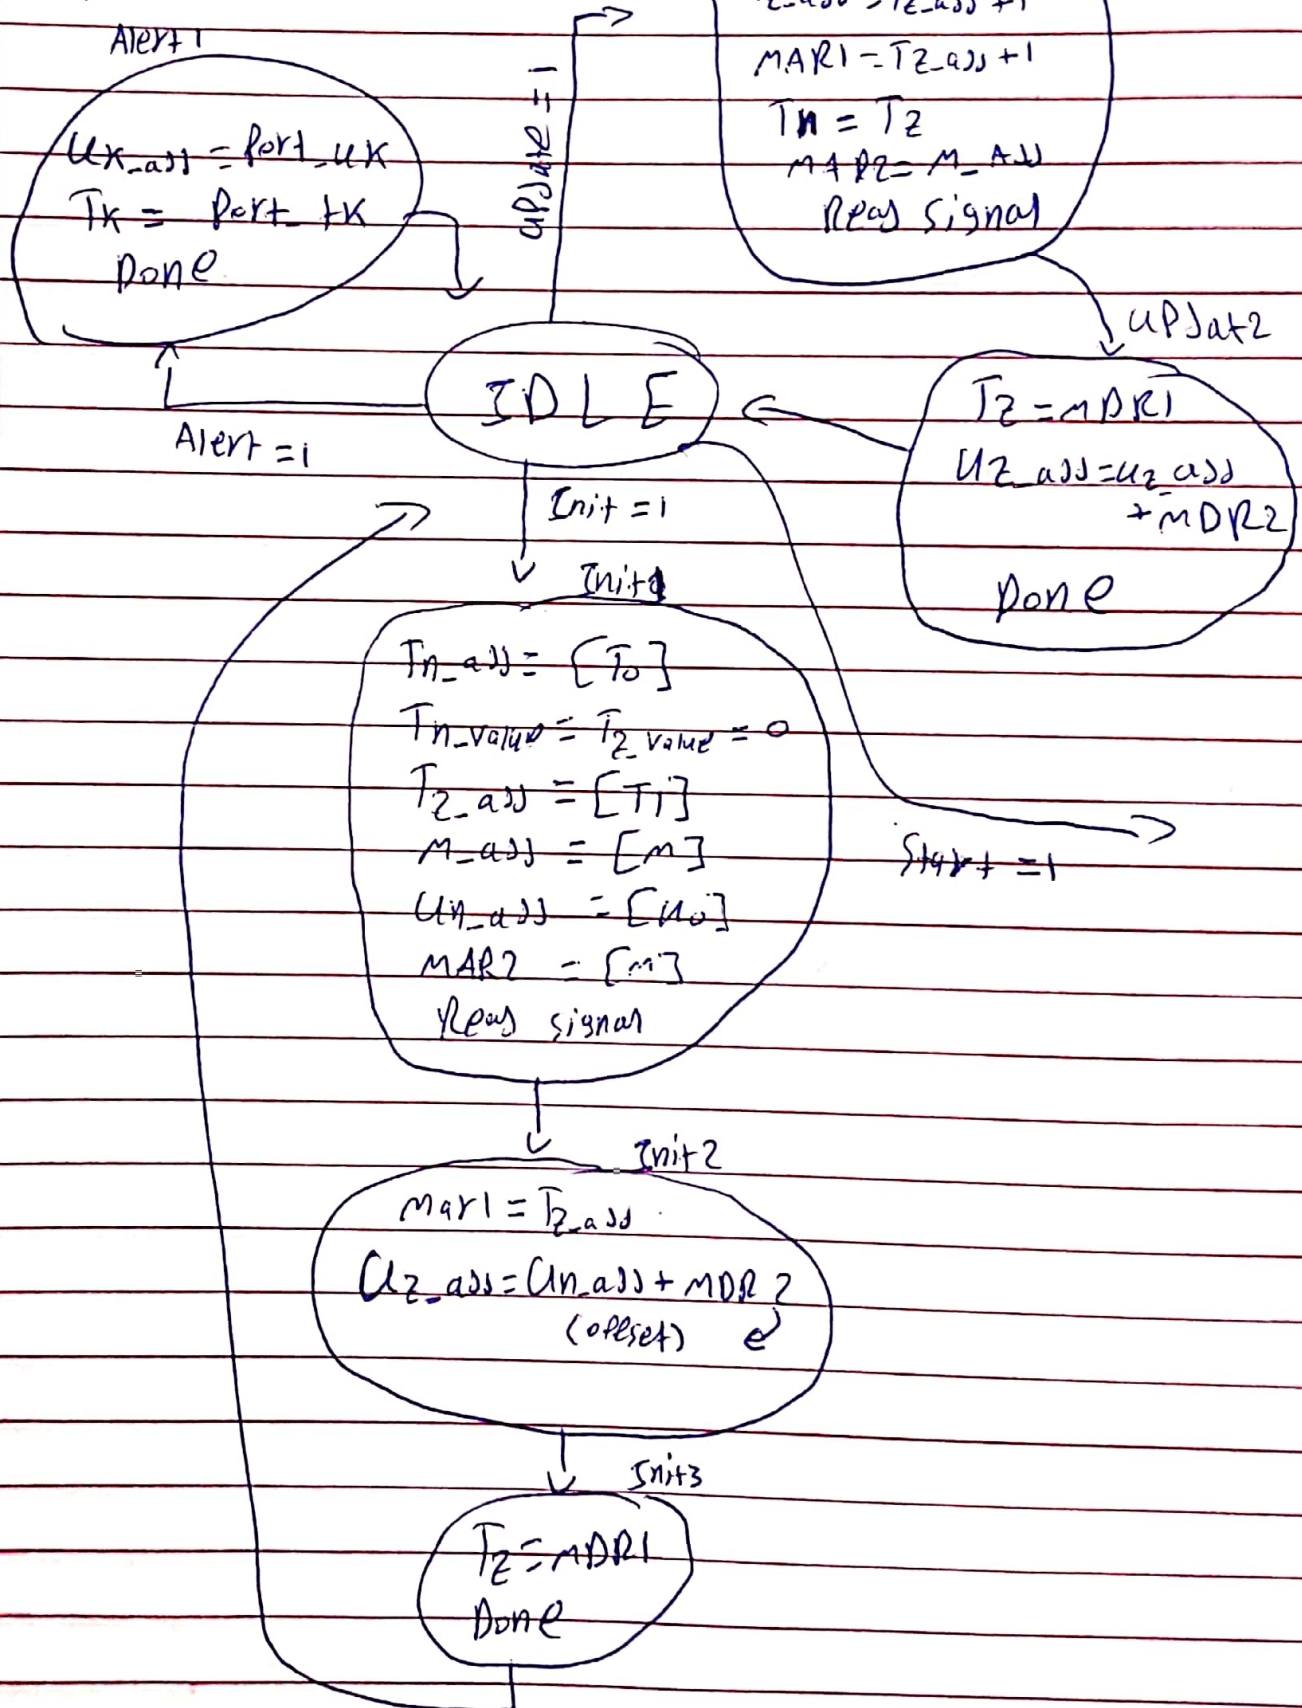 Alert1
Uk_add = Port_uk
Tk = Port_tk
Done
Update = 1
MAR1 = Tz_add + 1
Tn = Tz
MAR2 = M_Add
Read signal
Updat2
Tz = MDR1
Uz_add = uz_add
+ MDR2
Done
IDLE
Alert = 1
Init = 1
Start = 1
Init1
Tn_add = [T0]
Tn_value = Tz_value = 0
Tz_add = [T1]
M_add = [M]
Un_add = [U0]
MAR2 = [M]
Read signal
Init2
Mar1 = Tz_add
Uz_add = Un_add + MDR2
(offset)
Init3
Tz = MDR1
Done